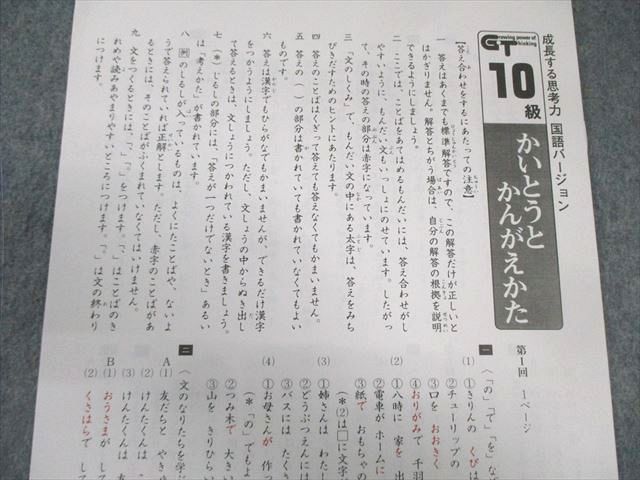 Growing power of Thinking
GT
成長する思考力 国語バージョン
10級
かいとうと
かんがえかた
【答え合わせをするにあたっての注意】
一 答えはあくまでも標準解答ですので、この解答だけが正しいと
はかぎりません。解答とちがう場合は、自分の解答の根拠を説明
できるようにしましょう。
二 ここでは、ことばをあてはめるもんだいには、答え合わせがし
やすいように、もんだい文もいっしょにのせています。したがっ
て、その時の答えの部分は赤字になっています。
三 「文のしくみ」で、もんだい文の中にある太字は、答えをみち
びきだすためのヒントにあたります。
四 答えのことばはくぎって答えても答えなくてもかまいません。
五 答えの( )の部分は書かれていても書かれていなくてもよい
ものです。
六 答えは漢字でもひらがなでもかまいませんが、できるだけ漢字
をつかうようにしましょう。ただし、文しょうの中からぬき出し
て答えるときは、文しょうにつかわれている漢字を書きましょう。
七 (*)じるしの部分には、「答えが一つだけでないとき」あるい
は「考えかた」が書かれています。
八 例のしるしが入っているものは、よくにたことばや、ないよ
うで答えられていれば正解とします。ただし、赤字のことばがあ
るときには、そのことばがふくまれていなくてはいけません。
九 文をつくるときには、「、」「。」をつけます。「、」はことばのき
れめや読みあやまりやすいところにつけます。「。」は文の終わり
につけます。
第1回 1ページ
一 「の」「で」「を」な
(1) ①きりんの くび
②チューリップの
③口を おおきく
④おりがみで 千羽
(2) ①八時に 家を 出
②電車が ホームに
③紙で おもちゃの
(*②は□に文字
(3) ①姉さんは わたし
②どうぶつえんに
③バスには たくさ
(4) ①お母さんが 作っ
(*「の」でもよ
②つみ木で 大きい
③山を きりひらい
二 〈文のなりたちを学
A
(1) 友だちと やき
(2) けんたくんは
けんたくんは 友
B
(1) おうさまが し
(2) くさはらで し